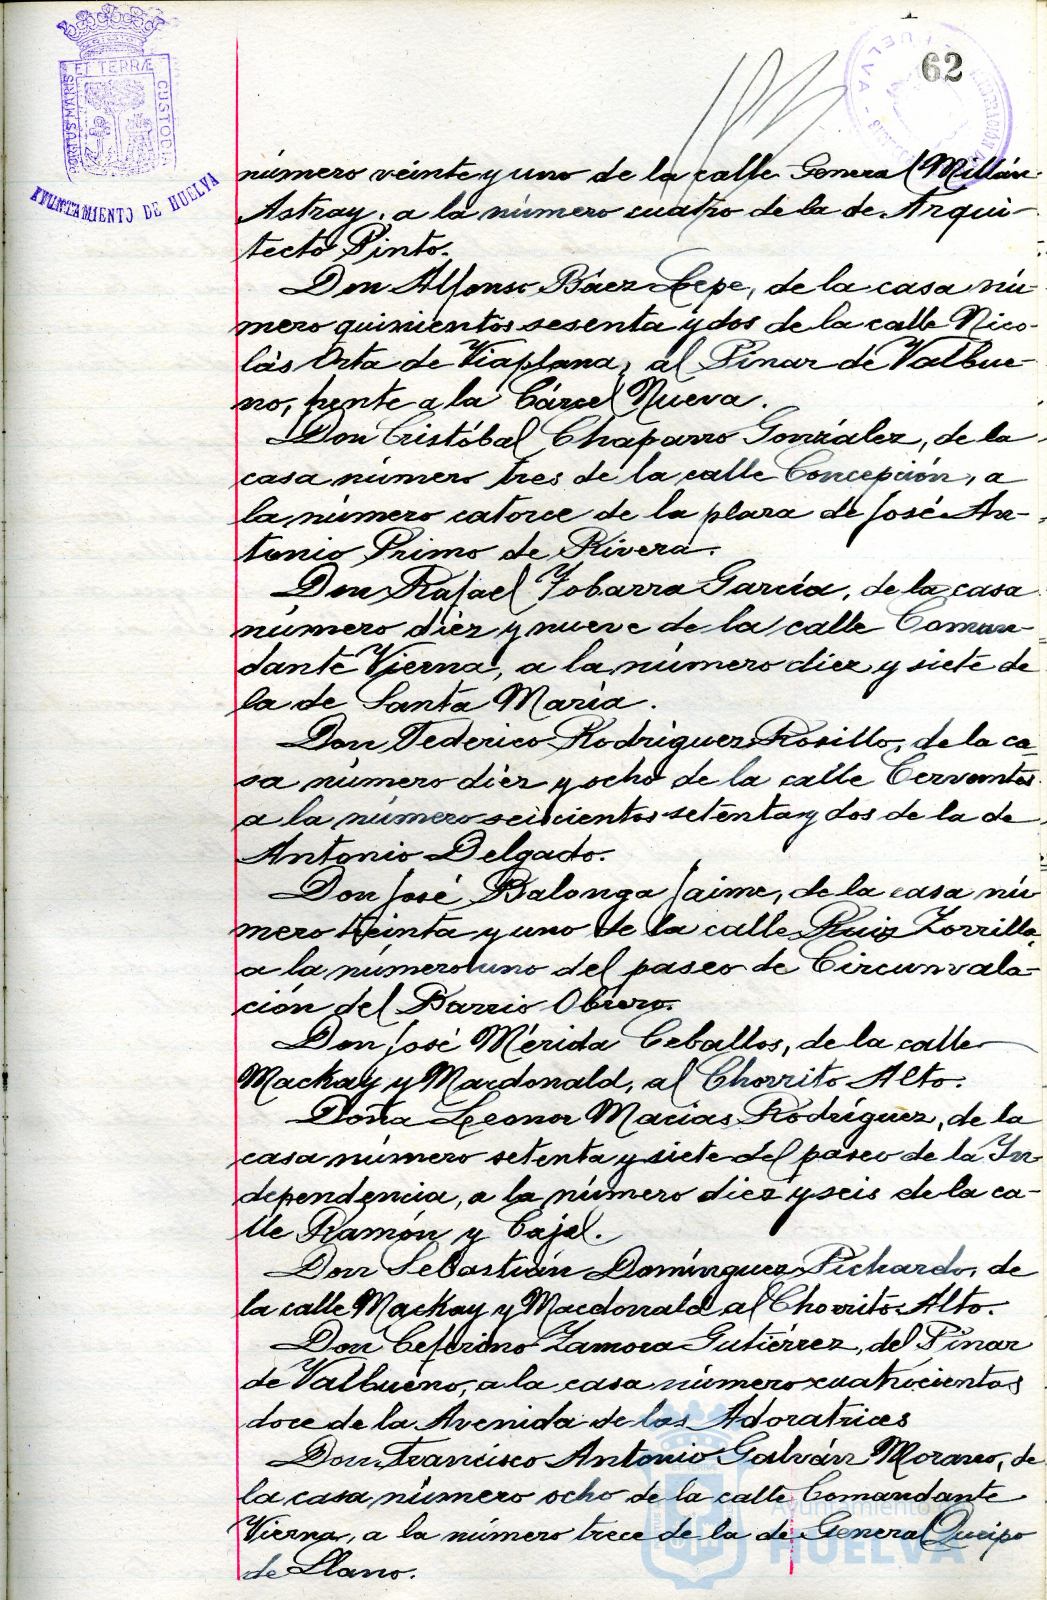 PORTUS MARIS ET TERRÆ CUSTODIA
AYUNTAMIENTO DE HUELVA
HUELVA
62
número veinte y uno de la calle General Millán
Astray, a la número cuatro de la de Arqui-
tecto Pinto.
Don Alfonso Báez Lepe, de la casa nú-
mero quinientos sesenta y dos de la calle Nico-
lás Orta de Viaplana, al Pinar de Valbue-
no, frente a la Cárcel Nueva.
Don Cristóbal Chaparro González, de la
casa número tres de la calle Concepción, a
la número catorce de la plaza de José An-
tonio Primo de Rivera.
Don Rafael Yobarra García, de la casa
número diez y nueve de la calle Coman-
dante Vierna, a la número diez y siete de
la de Santa María.
Don Federico Rodríguez Rosillo, de la ca-
sa número diez y ocho de la calle Cervantes
a la número seiscientos setenta y dos de la de
Antonio Delgado.
Don José Balonga Jaime, de la casa nú
mero treinta y uno de la calle Ruiz Zorrilla,
a la número uno del paseo de Circunvala-
ción del Barrio Obrero.
Don José Mérida Ceballos, de la calle
Mackay y Macdonald, al Chorrito Alto.
Doña Leonor Macías Rodríguez, de la
casa número setenta y siete del paseo de la In
dependencia, a la número diez y seis de la ca-
lle Ramón y Cajal.
Don Sebastián Domínguez Pichardo, de
la calle Mackay y Macdonald al Chorrito Alto.
Don Ceferino Zamora Gutiérrez, del Pinar
de Valbueno, a la casa número cuatrocientos
doce de la Avenida de las Adoratrices
Don Francisco Antonio Galván Morano, de
la casa número ocho de la calle Comandante
Vierna, a la número trece de la de General Queipo
de Llano.
Ayuntamiento
HUELVA